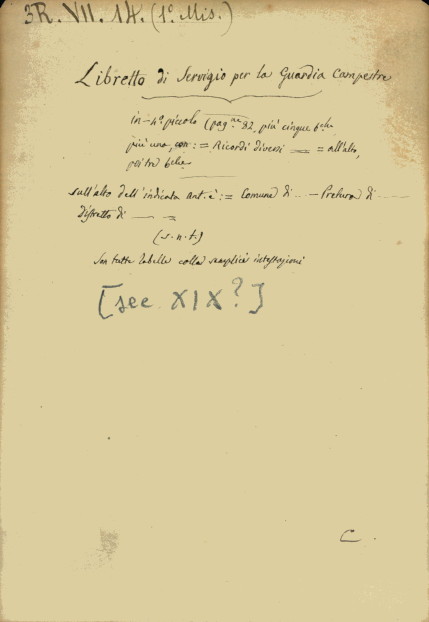 3R. VII. 14. (1º. Mis.)
Libretto di Servigio per la Guardia Campestre
in-4º piccolo (pag.ne 92, più cinque b.che
più una, con: = Ricordi diversi — = all'alto,
poi tre b.che
sull'alto dell'indicata ant.è: = Comune di .. — Pretura di —
Distretto di — =
(s.n.t.)
Son tutte tabelle colla semplice intestazioni
[sec XIX?]
C.